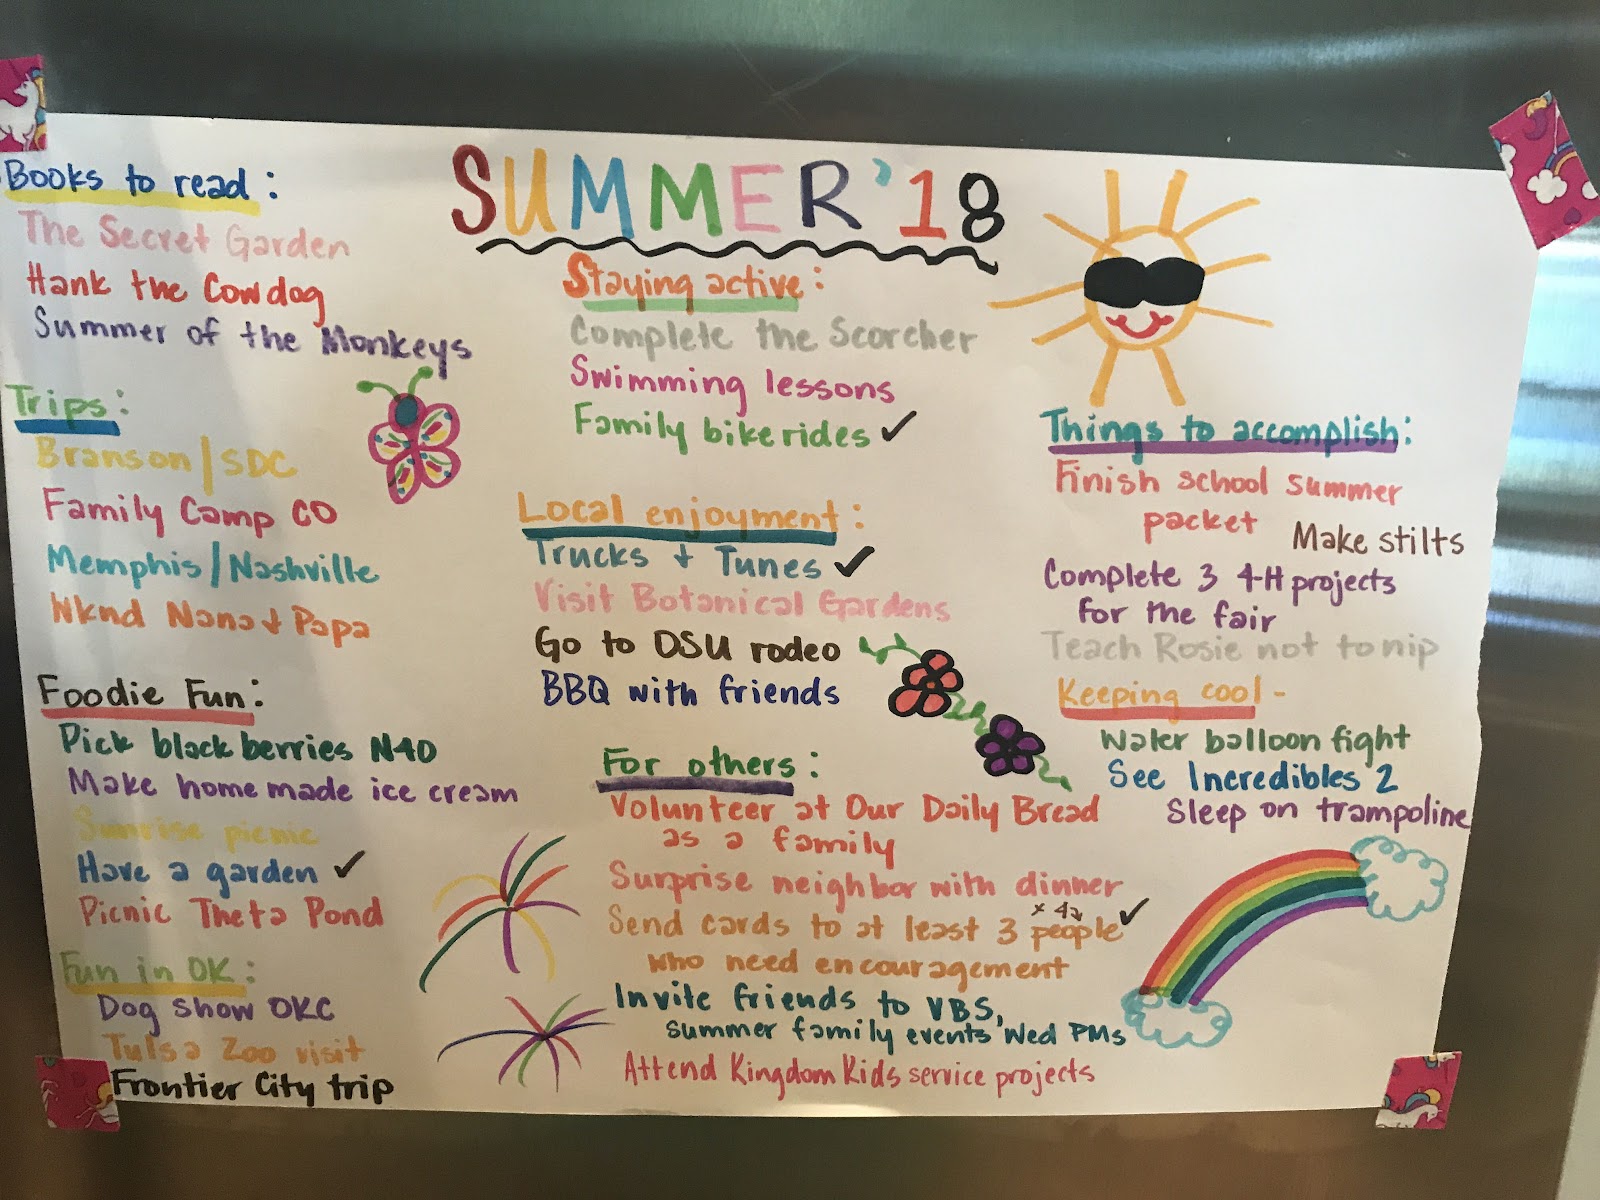 SUMMER '18
Books to read:
The Secret Garden
Hank the Cowdog
Summer of the Monkeys
Trips:
Branson/SDC
Family Camp CO
Memphis/Nashville
Wknd Nana + Papa
Foodie Fun:
Pick blackberries N40
Make homemade ice cream
Sunrise picnic
Have a garden ✓
Picnic Theta Pond
Fun in OK:
Dog show OKC
Tulsa Zoo visit
Frontier City trip
Staying active:
Complete the Scorcher
Swimming lessons
Family bike rides ✓
Local enjoyment:
Trucks + Tunes ✓
Visit Botanical Gardens
Go to OSU rodeo
BBQ with friends
For others:
Volunteer at Our Daily Bread
as a family
Surprise neighbor with dinner
Send cards to at least 3 people ✓
who need encouragement
Invite friends to VBS,
summer family events Wed PMs
Attend Kingdom Kids service projects
Things to accomplish:
Finish school summer
packet
Make stilts
Complete 3 4-H projects
for the fair
Teach Rosie not to nip
Keeping cool -
Water balloon fight
See Incredibles 2
Sleep on trampoline